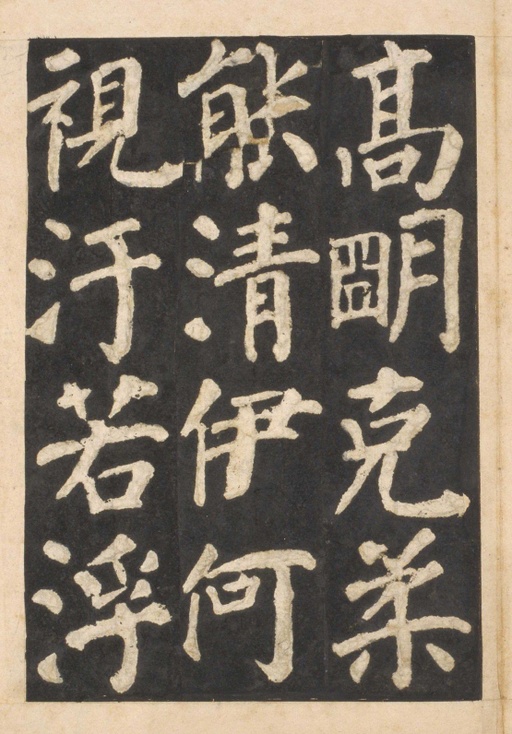 髙朙克柔
能清伊何
視汙若浮